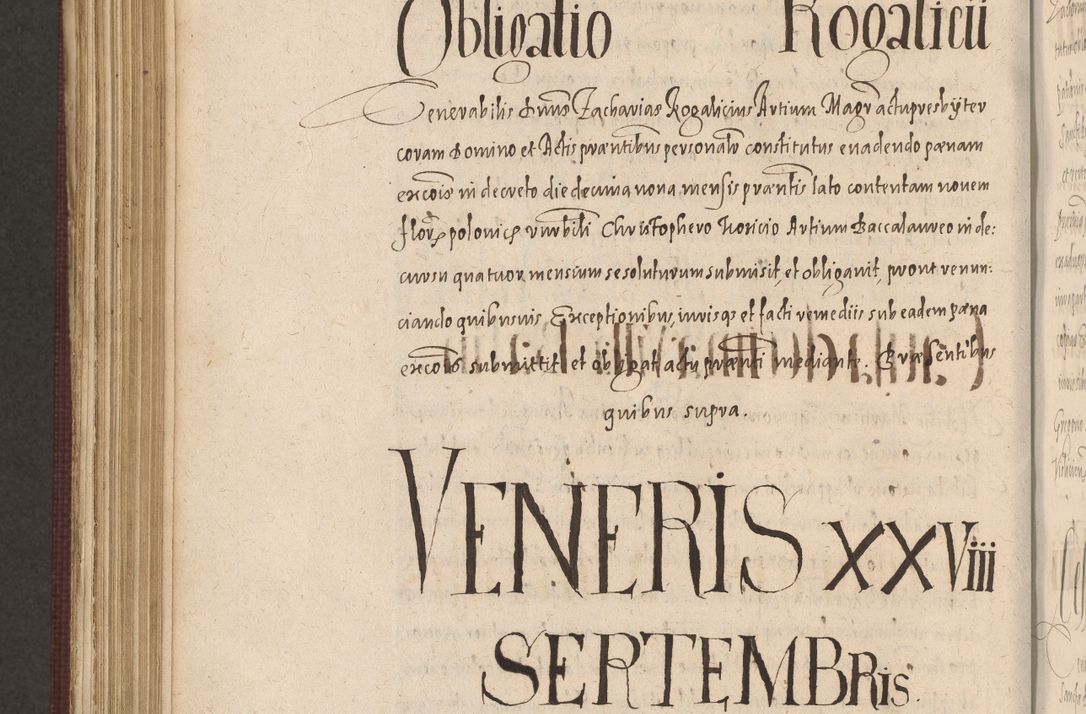 Obligatio Rogalicii
Venerabilis Dnus Zacharias Rogalicius Artium Magr actu presbÿter
coram Domino et Actis praentibus personalr constitutus euadendo paenam
excois in decreto die decima nona mensis praentis lato contentam nouem
flor polonic vnrbili Christophero Koricio Artium Baccalaureo in de:
cursu quatuor mensium se soluturum submisit, et obligauit, prout renun:
ciando quibusuis Exceptionibus, iurisq et facti remediis sub eadem paena
excois submittit et obligat actu praenti mediante. Praesentibus
quibus supra.
VENERIS XXViii
SEPTEMBRis.